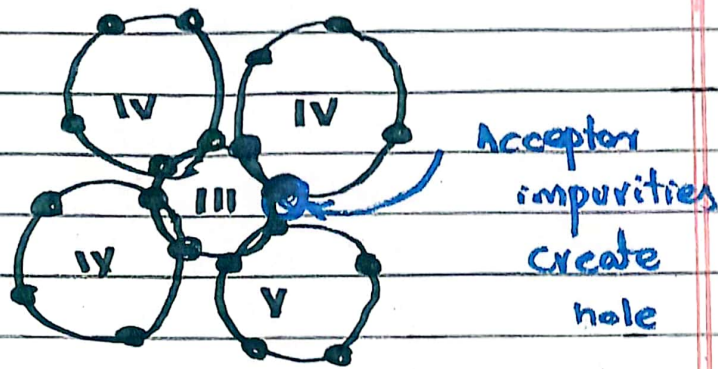 IV
IV
III
IV
V
Acceptor
impurities
create
hole